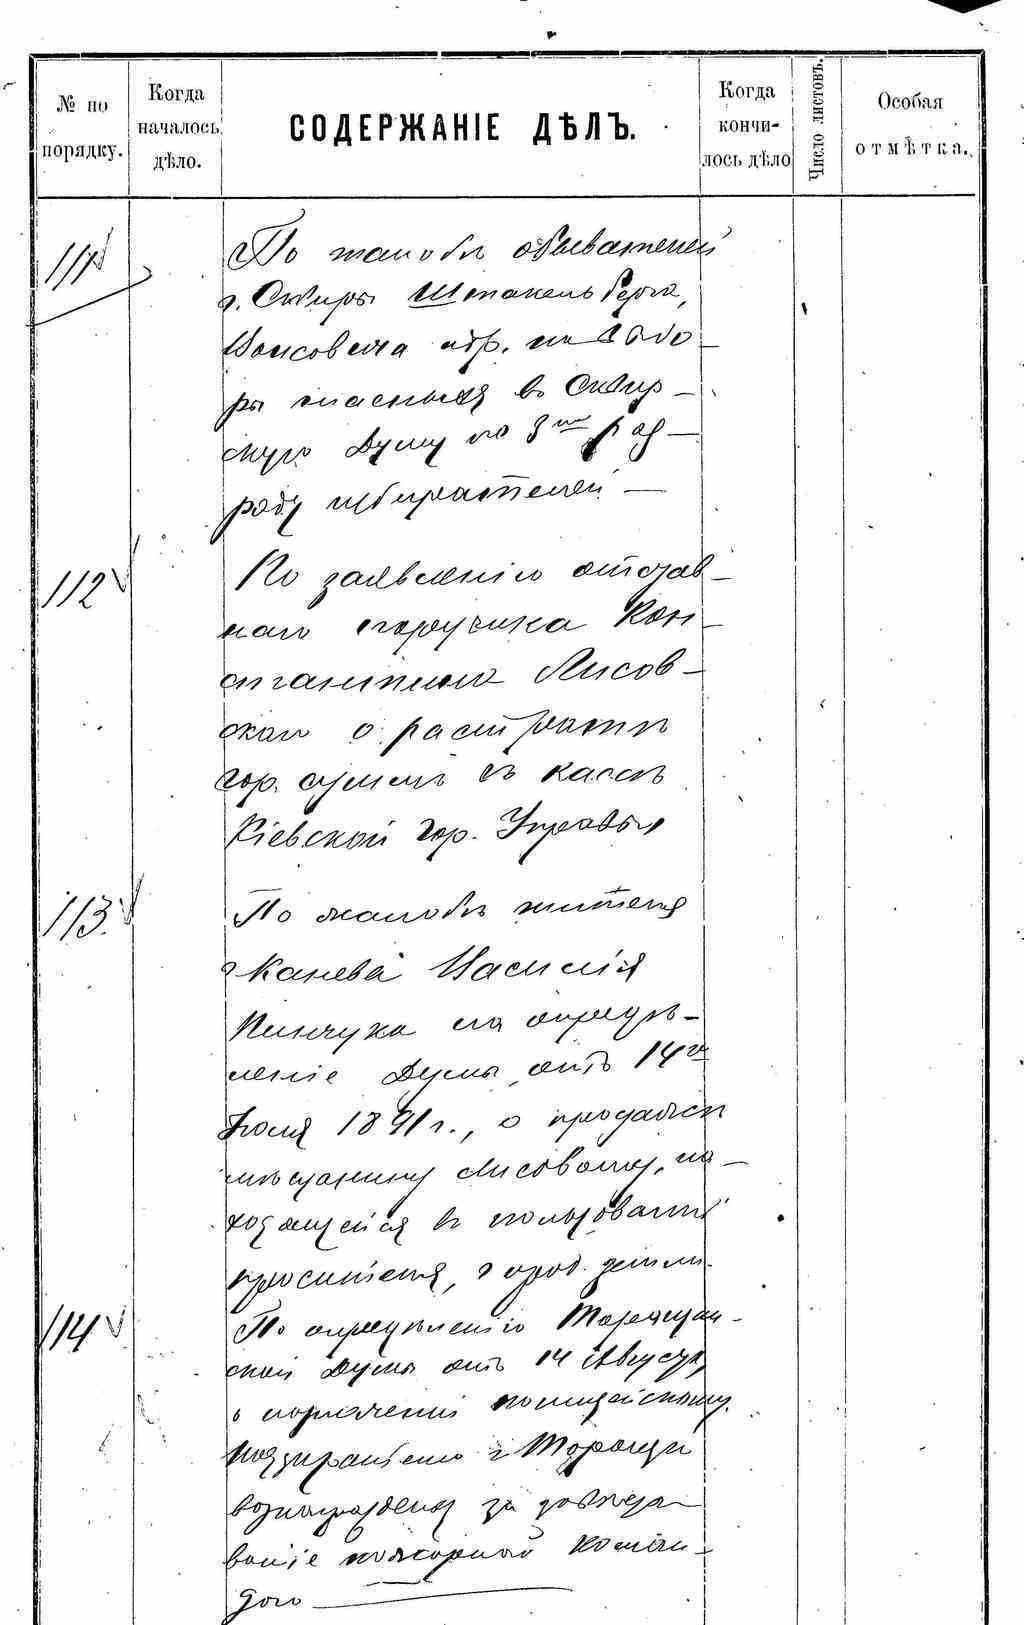 № по порядку.
Когда началось дѣло.
СОДЕРЖАНІЕ ДѢЛЪ.
Когда кончилось дѣло
Число листовъ.
Особая отмѣтка.
111
По жалобѣ обывателей
г. Сквиры Штакельберга,
и др. на выбо-
ры гласныхъ въ Сквир-
скую Думу по 3му раз-
ряду избирателей —
112
По заявленію отстав-
наго поручика Кон-
стантина Лисов-
скаго о растратѣ
гор. суммъ въ кассѣ
Кіевской Гор. Управы
113.
По жалобѣ жителя
г. Канева Василія
Пинчука на опредѣ-
леніе Думы отъ 14го
Іюля 1891 г., о продажѣ
мѣщанину Лисовому, на-
ходящейся въ пользованіи
просителя, город. земли.
114
По опредѣленію Таращан-
ской Думы отъ 14 Августа,
о назначеніи полицейскому
надзирателю г. Таращи
вознагражденія за завѣдыва-
ваніе пожарною коман-
дою —